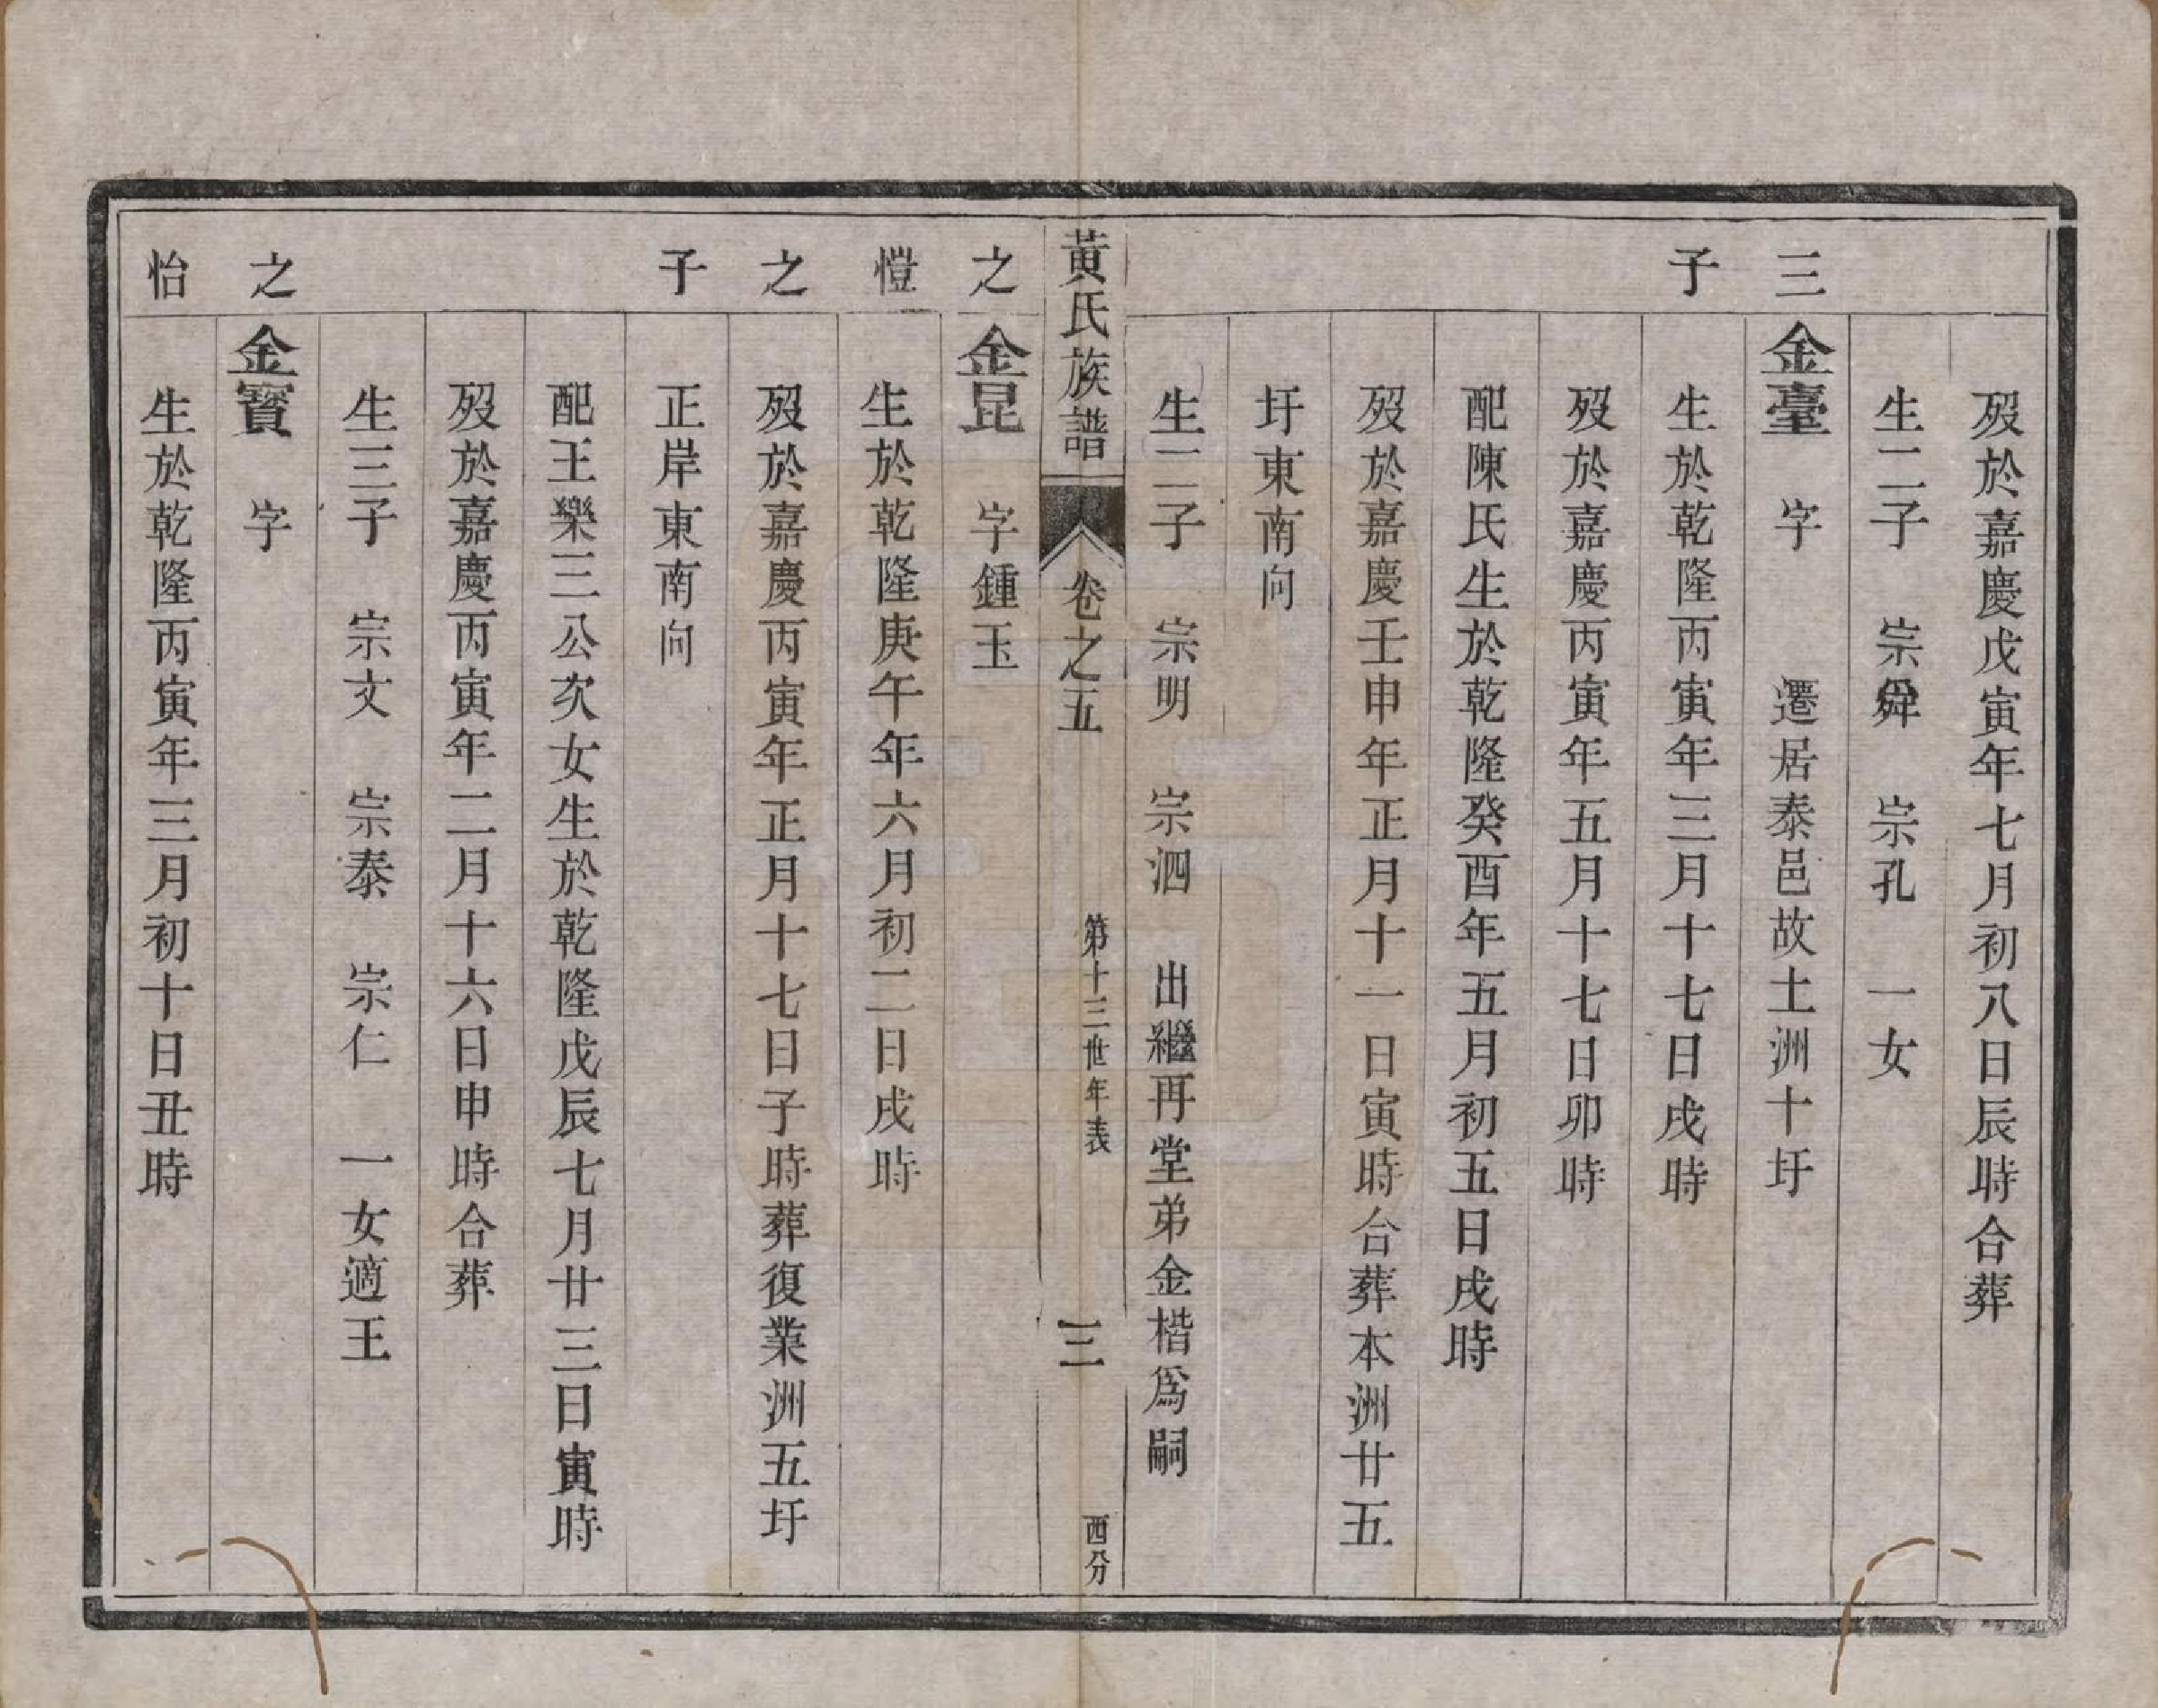 歿於嘉慶戊寅年七月初八日辰時合葬
生二子　宗舜　宗孔　一女
三　金臺　字　遷居泰邑故土洲十圩
子　生於乾隆丙寅年三月十七日戌時
歿於嘉慶丙寅年五月十七日卯時
配陳氏生於乾隆癸酉年五月初五日戌時
歿於嘉慶壬申年正月十一日寅時合葬本洲廿五
圩東南向
生二子　宗明　宗泗　出繼再堂弟金楷爲嗣
黃氏族譜　卷之五　第十三世年表　三　西分
之　金昆　字鍾玉
愷　生於乾隆庚午年六月初二日戌時
之　歿於嘉慶丙寅年正月十七日子時葬復業洲五圩
子　正岸東南向
配王樂三公次女生於乾隆戊辰七月廿三日寅時
歿於嘉慶丙寅年二月十六日申時合葬
生三子　宗文　宗泰　宗仁　一女適王
之　金寳　字
怡　生於乾隆丙寅年三月初十日丑時